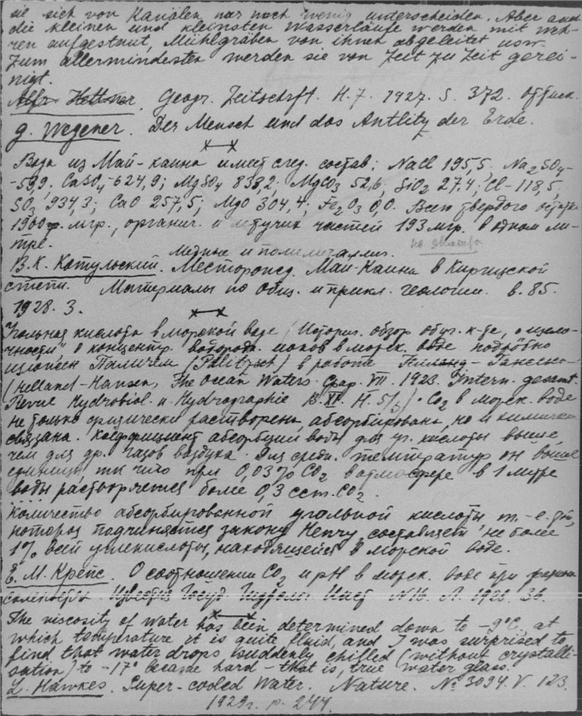 sie sich von Kanälen nur noch wenig unterscheiden. Aber auch
die kleinen und kleinsten Wasserläufe werden mit Weh-
ren aufgestaut, Mühlgräben von ihnen abgeleitet usw.
Zum allermindesten werden sie von Zeit zu Zeit gerei-
nigt.
Alfr. Hettner. Geogr. Zeitschrft. H. 7. 1927. S. 372.
G. Wegener. Der Mensch und das Antlitz der Erde.
Вода из Май-каина имеет след. состав: NaCl 195,5. Na2SO4-
-599. CaSO4-624,9; MgSO4 838,2; MgCO3 52,6; SiO2 27,4; Cl-118,5,
SO3 934,3; CaO 257,5; MgO 304,4; Fe2O3 0,0. Всего твердого
1900 мгр., органич. и летучих частей 193 мгр. в одном ли-
тре.
Медные и полиметаллич.
В.К. Котульский. Месторожд. Май-Каина в Киргизской
степи. Материалы по общ. и прикл. геологии. в. 85.
1928. 3.
Угольная кислота в морской воде. Историч. обзор о щелоч-
ности и концентр. водородн. ионов в морск. воде подробно
изложен Паличем (Palitzsch) в работе Гансена
(Helland-Hansen, The Ocean Waters. VII. 1923. Intern. gesamt.
Revue Hydrobiol. u. Hydrographie. CO2 в морск. воде
не только физически растворена, абсорбирована, но и химически
связана. Коэффициент абсорбции воды для уг. кислоты выше,
чем для др. газов воздуха. Для средн. температур он выше
единицы так что при 0,03% CO2 в атмосфере в 1 литре
воды растворяется более 0,3 ccm. CO2.
Количество абсорбированной угольной кислоты,
которая подчиняется закону Henry, составляет не более
1% всей углекислоты, находящейся в морской воде.
Е. М. Крепс. О соотношении CO2 и pH в морск. воде при
Известия Госуд. Гидролог. Инст. №16. Л. 1926. 36.
The viscosity of water has been determined down to -9°C, at
which temperature it is quite fluid, and I was surprised to
find that water drops suddenly chilled (without crystalli-
sation) to -17° became hard - that is, true "water glass."
L. Hawkes. Super-cooled Water. Nature. № 3094. V. 123.
1929. p. 244.